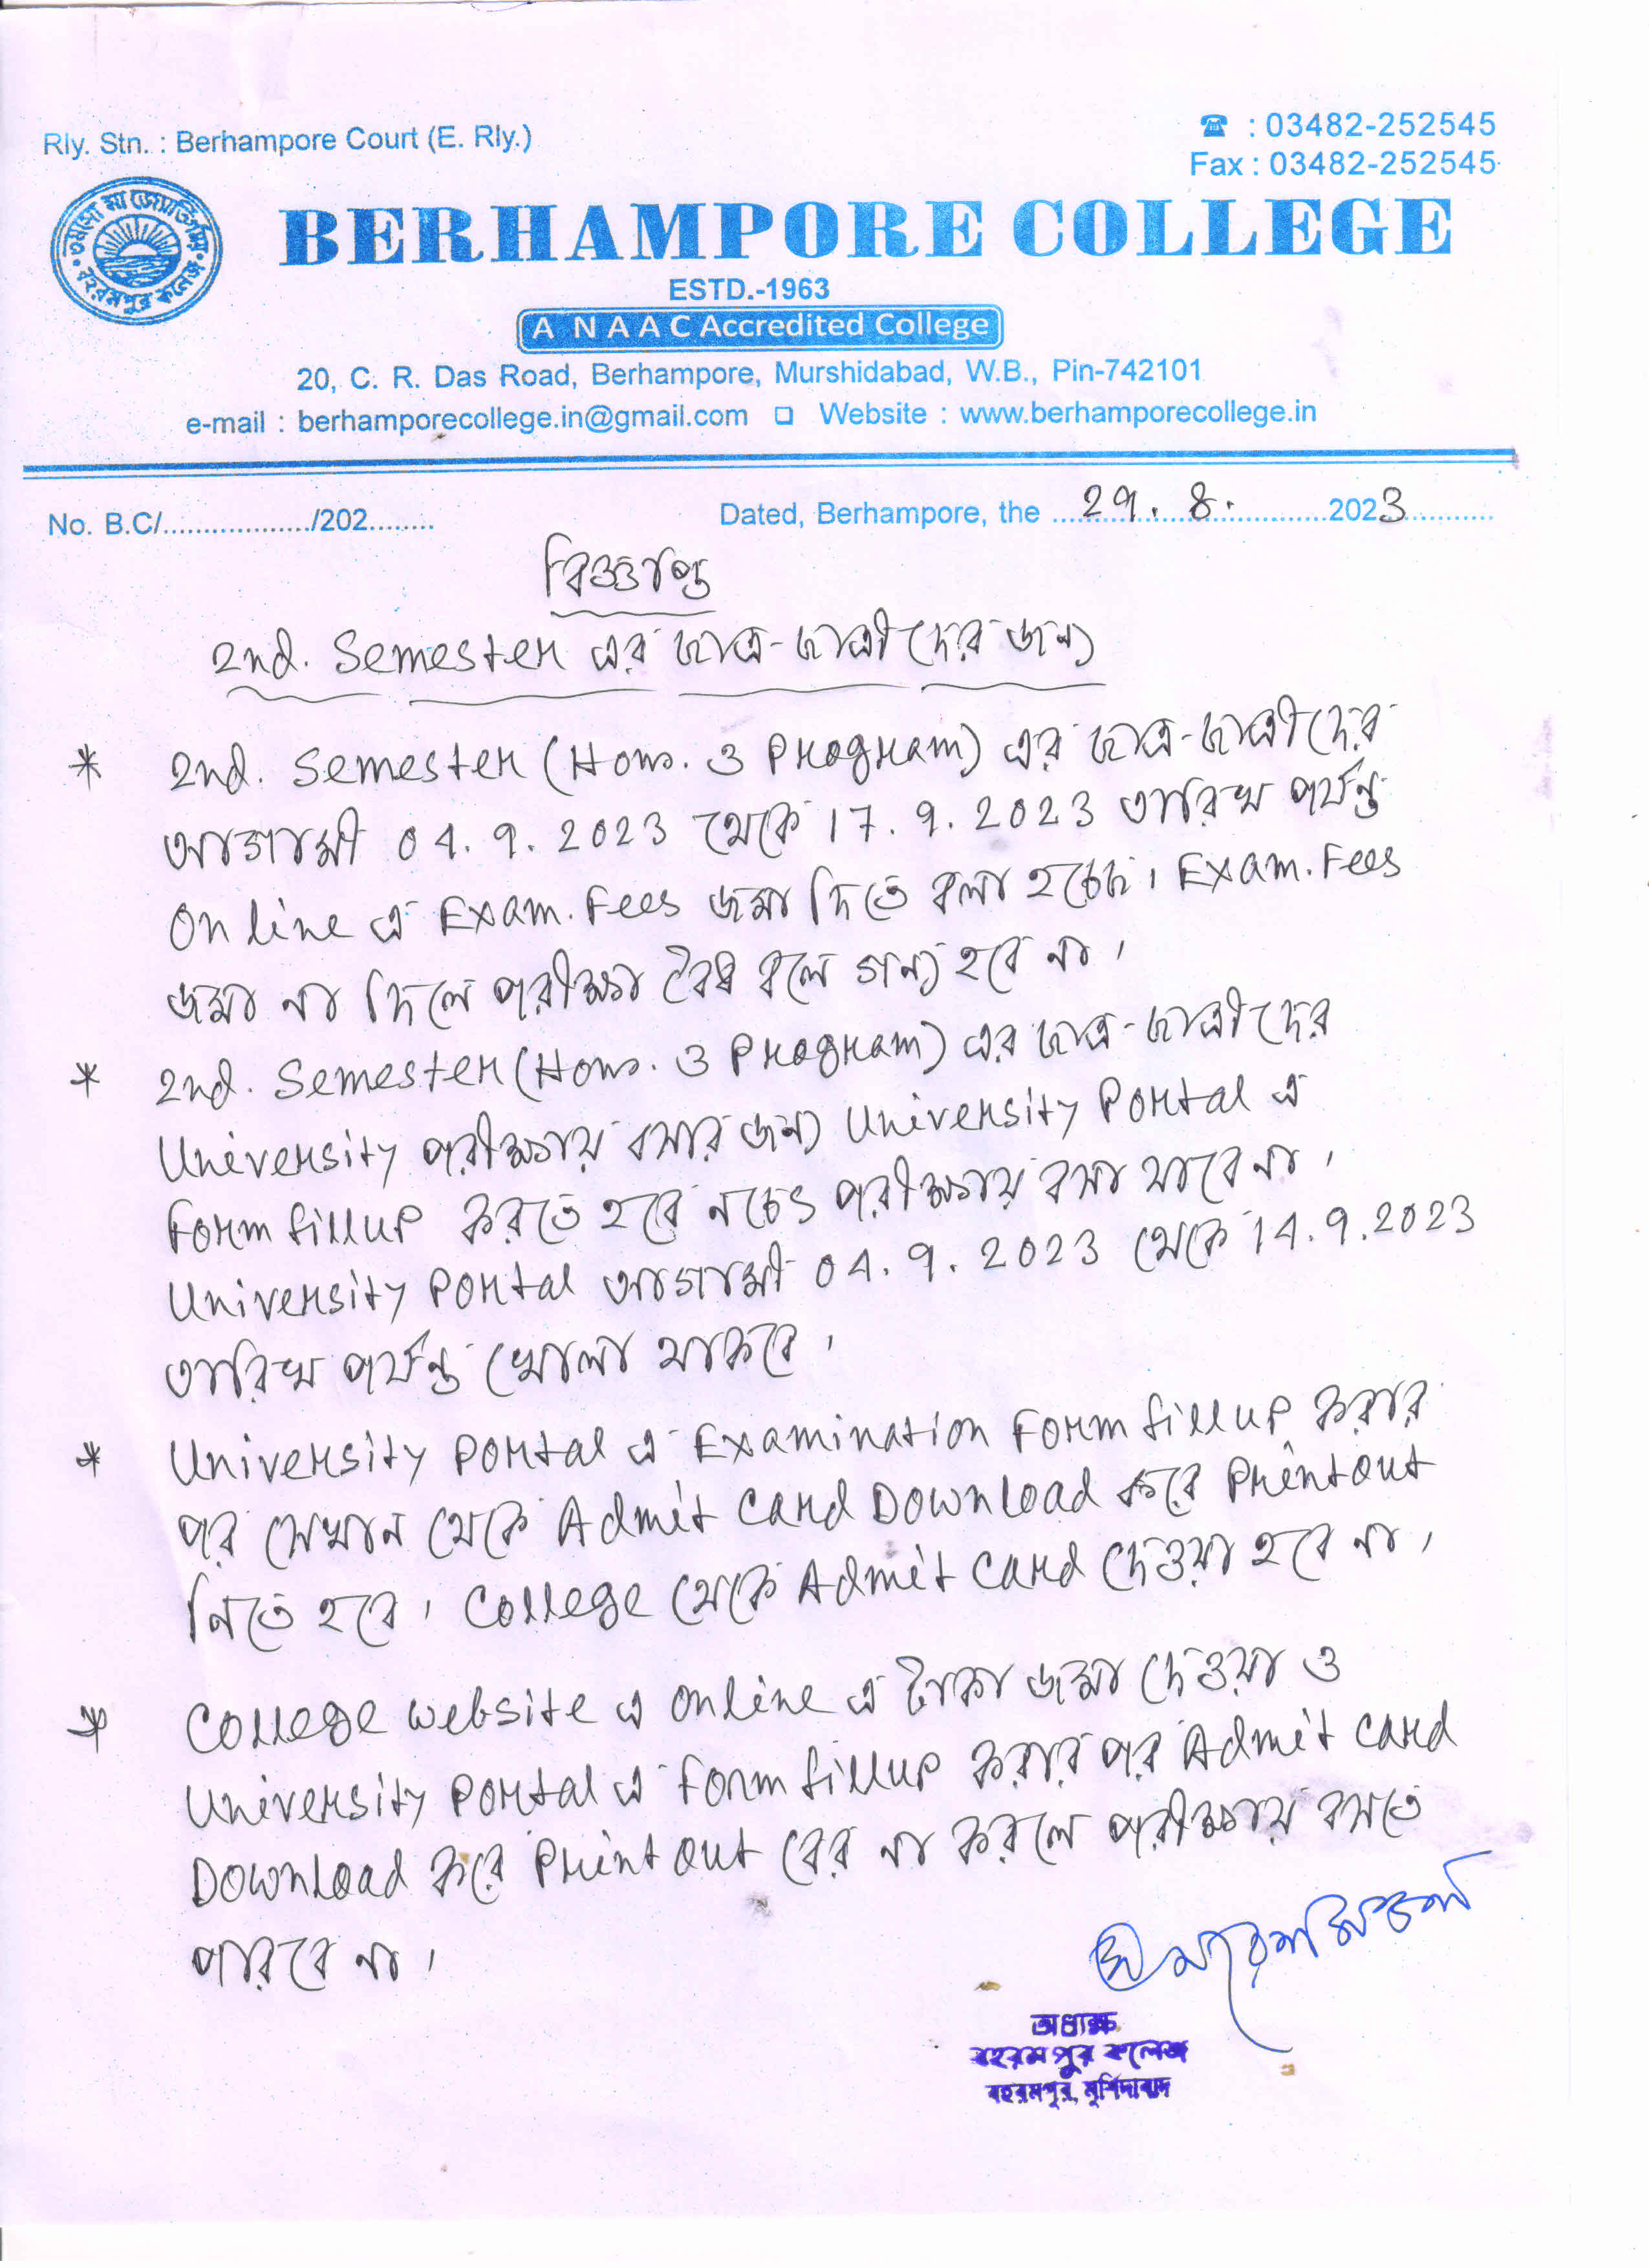 Rly. Stn. : Berhampore Court (E. Rly.)
☎ : 03482-252545
Fax : 03482-252545
তমসো মা জ্যোতির্গময়
বহরমপুর কলেজ
BERHAMPORE COLLEGE
ESTD.-1963
A NAAC Accredited College
20, C. R. Das Road, Berhampore, Murshidabad, W.B., Pin-742101
e-mail : berhamporecollege.in@gmail.com ❑ Website : www.berhamporecollege.in
No. B.C/................../202........
Dated, Berhampore, the ....29. 8. ....2023............
বিজ্ঞপ্তি
2nd. Semester এর ছাত্র-ছাত্রীদের জন্য
* 2nd. Semester (Hons. ও Program) এর ছাত্র-ছাত্রীদের
আগামী 04. 9. 2023 থেকে 17. 9. 2023 তারিখ পর্যন্ত
Online এ Exam. Fees জমা দিতে বলা হচ্ছে। Exam. Fees
জমা না দিলে পরীক্ষা বৈধ বলে গন্য হবে না।
* 2nd. Semester (Hons. ও Program) এর ছাত্র-ছাত্রীদের
University পরীক্ষায় বসার জন্য University Portal এ
Form fillup করতে হবে নচেৎ পরীক্ষায় বসা যাবে না।
University Portal আগামী 04. 9. 2023 থেকে 14. 9. 2023
তারিখ পর্যন্ত খোলা থাকবে।
* University Portal এ Examination Form fillup করার
পর সেখান থেকে Admit Card Download করে Printout
নিতে হবে। College থেকে Admit Card দেওয়া হবে না।
* College Website এ Online এ টাকা জমা দেওয়া ও
University Portal এ Form fillup করার পর Admit Card
Download করে Print Out বের না করলে পরীক্ষায় বসতে
পারবে না।
অধ্যক্ষ
বহরমপুর কলেজ
বহরমপুর, মুর্শিদাবাদ